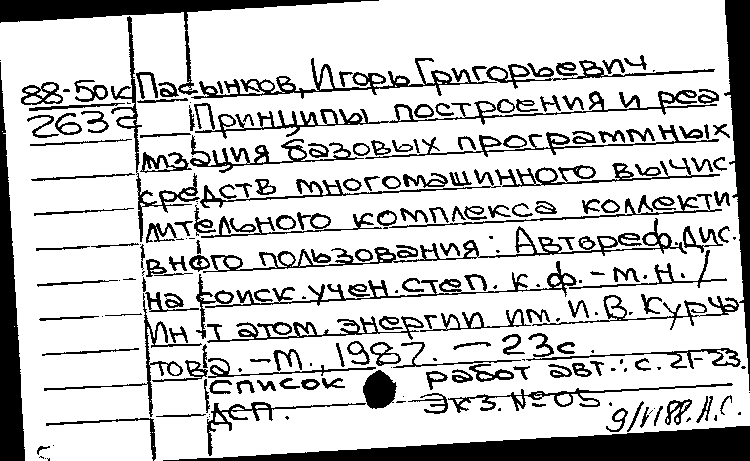 88-50к Пасынков, Игорь Григорьевич.
2632 Принципы построения и реа-
лизация базовых программных
средств многомашинного вычис-
лительного комплекса коллекти-
вного пользования: Автореф. дис.
на соиск. учен. степ. к. ф.-м. н. /
Ин-т атом. энергии им. И. В. Курча-
това. -М., 1987. - 23с.
список работ авт.: с. 21-23.
ДСП. Экз. №05.
9/VI88. А.С.